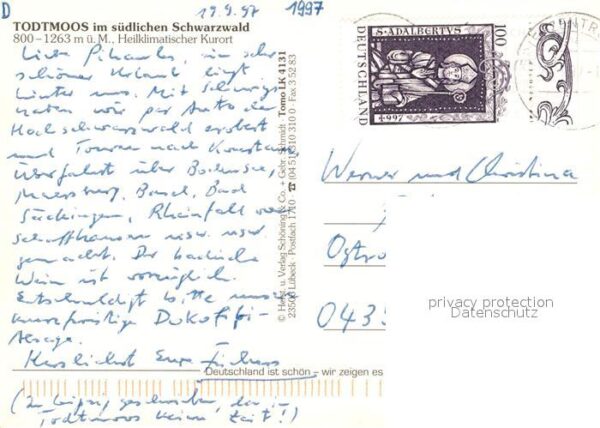 D
19.9.97
1997
TODTMOOS im südlichen Schwarzwald
800 – 1263 m ü. M., Heilklimatischer Kurort
Liebe ein sehr
schöner Urlaub liegt
hinter uns. Mit
haben wir per Auto den
Hochschwarzwald erobert
und Touren nach Konstanz,
Überfahrt über Bodensee,
Meersburg, Basel, Bad
Säckingen, Rheinfall von
Schaffhausen usw. usw.
gemacht. Der badische
Wein ist vorzüglich.
Entschuldigt bitte unsere
kurzfristige
Absage.
Herzlichst Eure
(In Leipzig geschrieben, da in
Todtmoos keine Zeit!)
© Herst. u. Verlag Schöning & Co. + Gebr. Schmidt · Tomo LK 4131
23506 Lübeck · Postfach 1710 · ☎ (04 51) 310 310 Fax 3 52 83
Deutschland ist schön – wir zeigen es
S·ADALBERTVS
100
DEUTSCHLAND
997
Werner und Christina
0435
privacy protection
Datenschutz